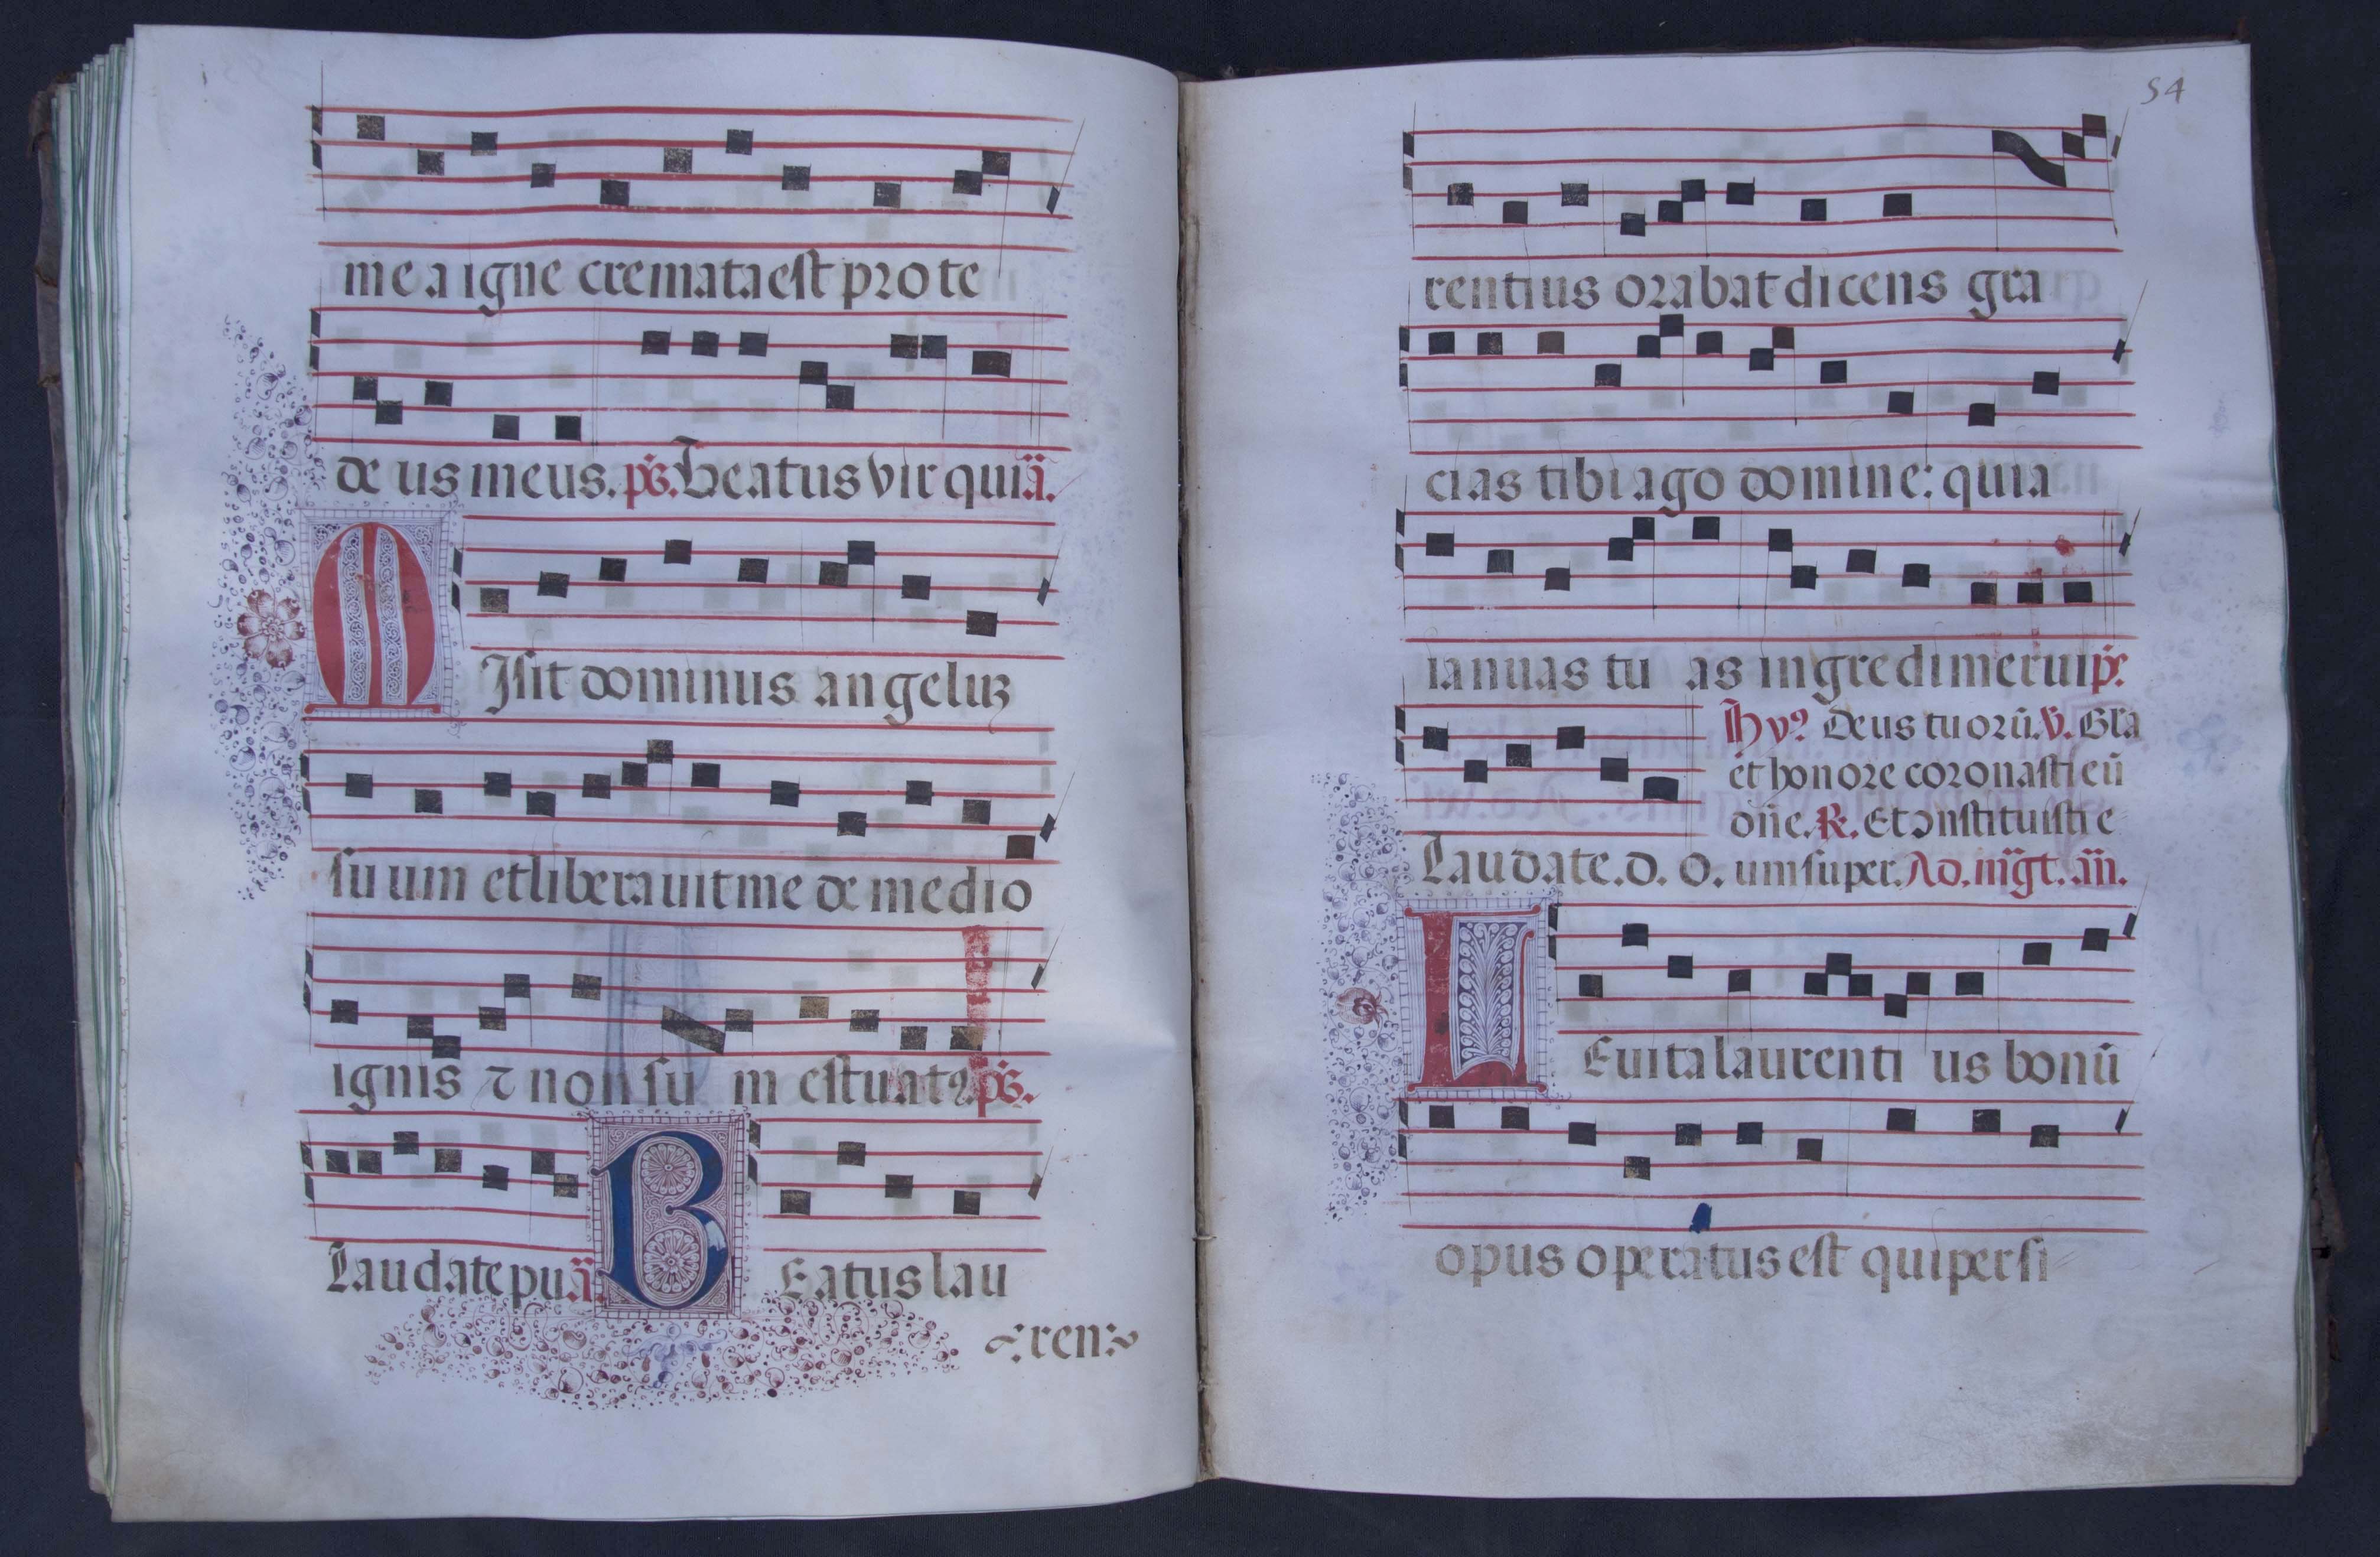 me a igne cremata est pro te
de us meus. ps. Beatus vir qui ā.
MIsit dominus angeluʒ
suum et liberauit me de medio
ignis ⁊ non sum estuatꝰ. ps.
Laudate pu ā. BEatus lau
ren
54
rentius orabat dicens gra
cias tibi ago domine: quia
ianuas tuas ingredi merui ps.
Hyꝰ Deus tuorū. ℣. Gl̄a
et honore coronasti eū
dn̄e. ℟. Et ↄnstituisti e
Laudate. d. o. um super. Ad. mḡt. an̄.
LEuita laurentius bonū
opus operatus est qui per si